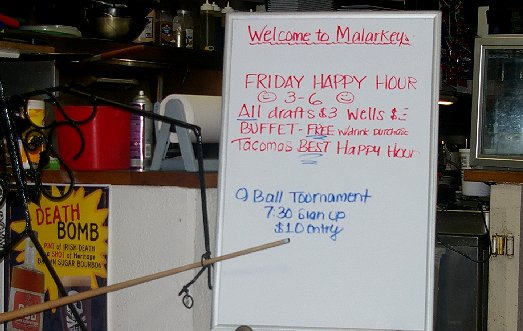 Welcome to Malarkeys
FRIDAY HAPPY HOUR
3-6
All drafts $3 Wells
BUFFET - FREE w/drink purchase
Tacoma's BEST Happy Hour
9 Ball Toornament
7:30 Sign up
$10 entry
DEATH
BOMB
PINT of IRISH DEATH
a SHOT of Heritage
BROWN SUGAR BOURBON